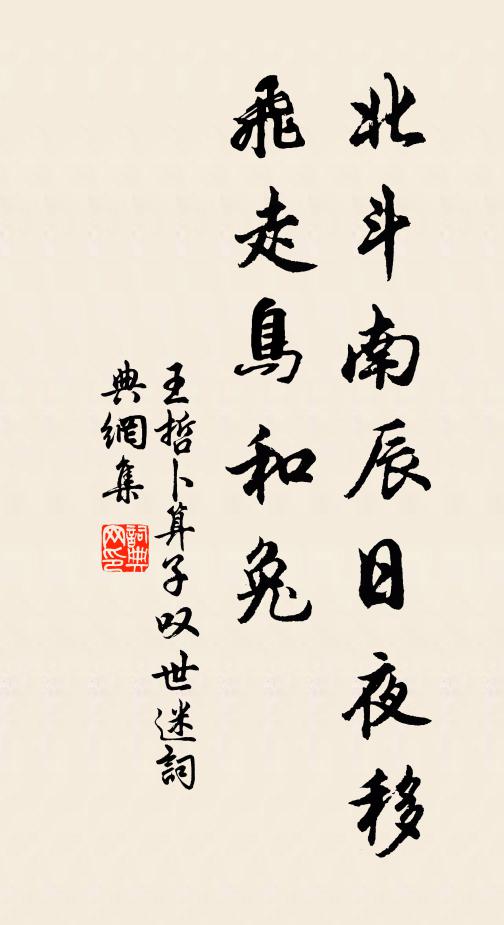 北斗南辰日夜移
飛走鳥和兔
王哲卜算子叹世迷詞
典網集
詞典
网印